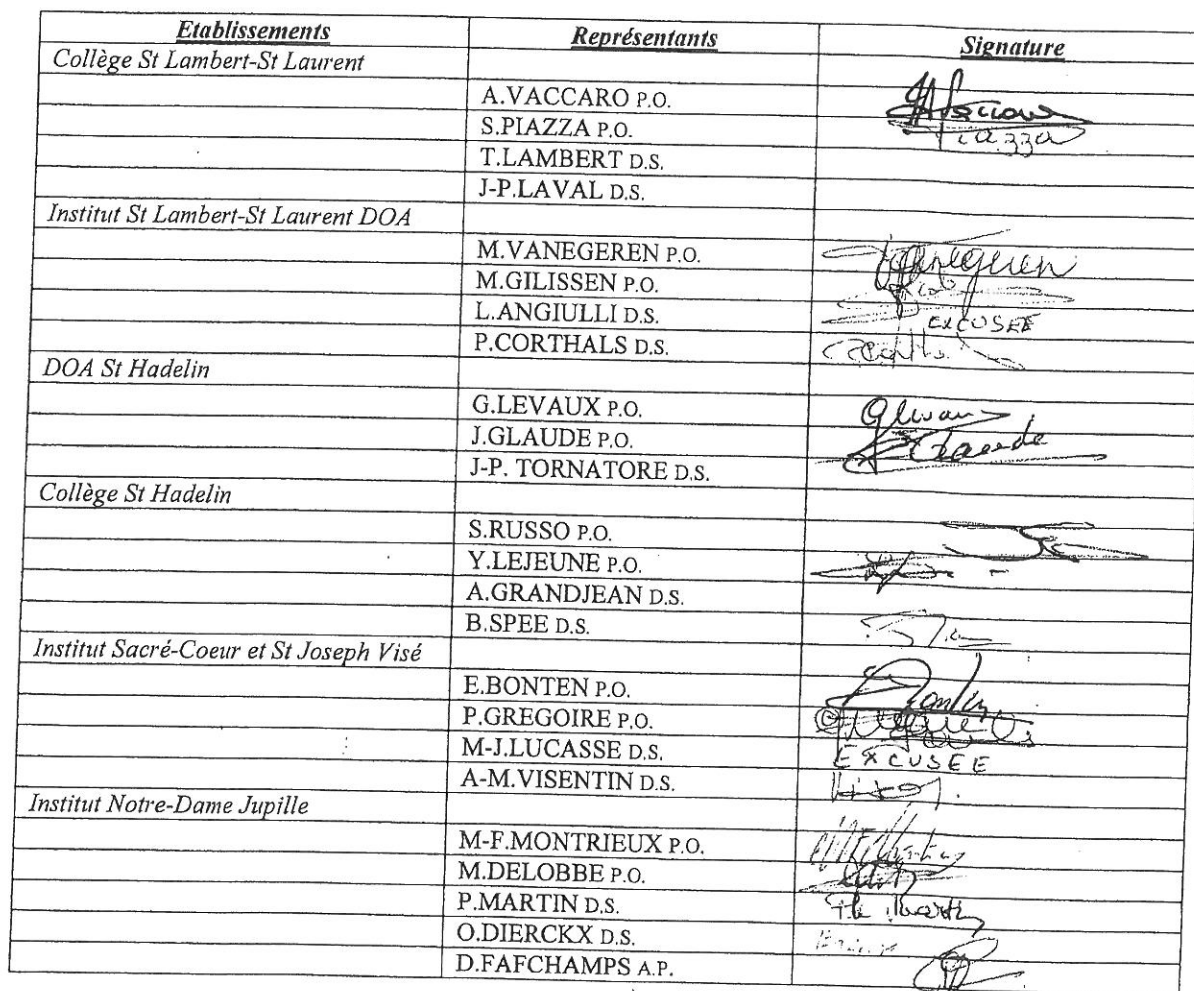 Etablissements Représentants Signature
Collège St Lambert-St Laurent
A.VACCARO P.O.
S.PIAZZA P.O. Piazza
T.LAMBERT D.S.
J-P.LAVAL D.S.
Institut St Lambert-St Laurent DOA
M.VANEGEREN P.O. Vanegeren
M.GILISSEN P.O.
L.ANGIULLI D.S. EXCUSEE
P.CORTHALS D.S.
DOA St Hadelin
G.LEVAUX P.O.
J.GLAUDE P.O. Glaude
J-P. TORNATORE D.S.
Collège St Hadelin
S.RUSSO P.O.
Y.LEJEUNE P.O.
A.GRANDJEAN D.S.
B.SPEE D.S.
Institut Sacré-Coeur et St Joseph Visé
E.BONTEN P.O.
P.GREGOIRE P.O.
M-J.LUCASSE D.S. EXCUSEE
A-M.VISENTIN D.S.
Institut Notre-Dame Jupille
M-F.MONTRIEUX P.O.
M.DELOBBE P.O.
P.MARTIN D.S. Martin
O.DIERCKX D.S.
D.FAFCHAMPS A.P.